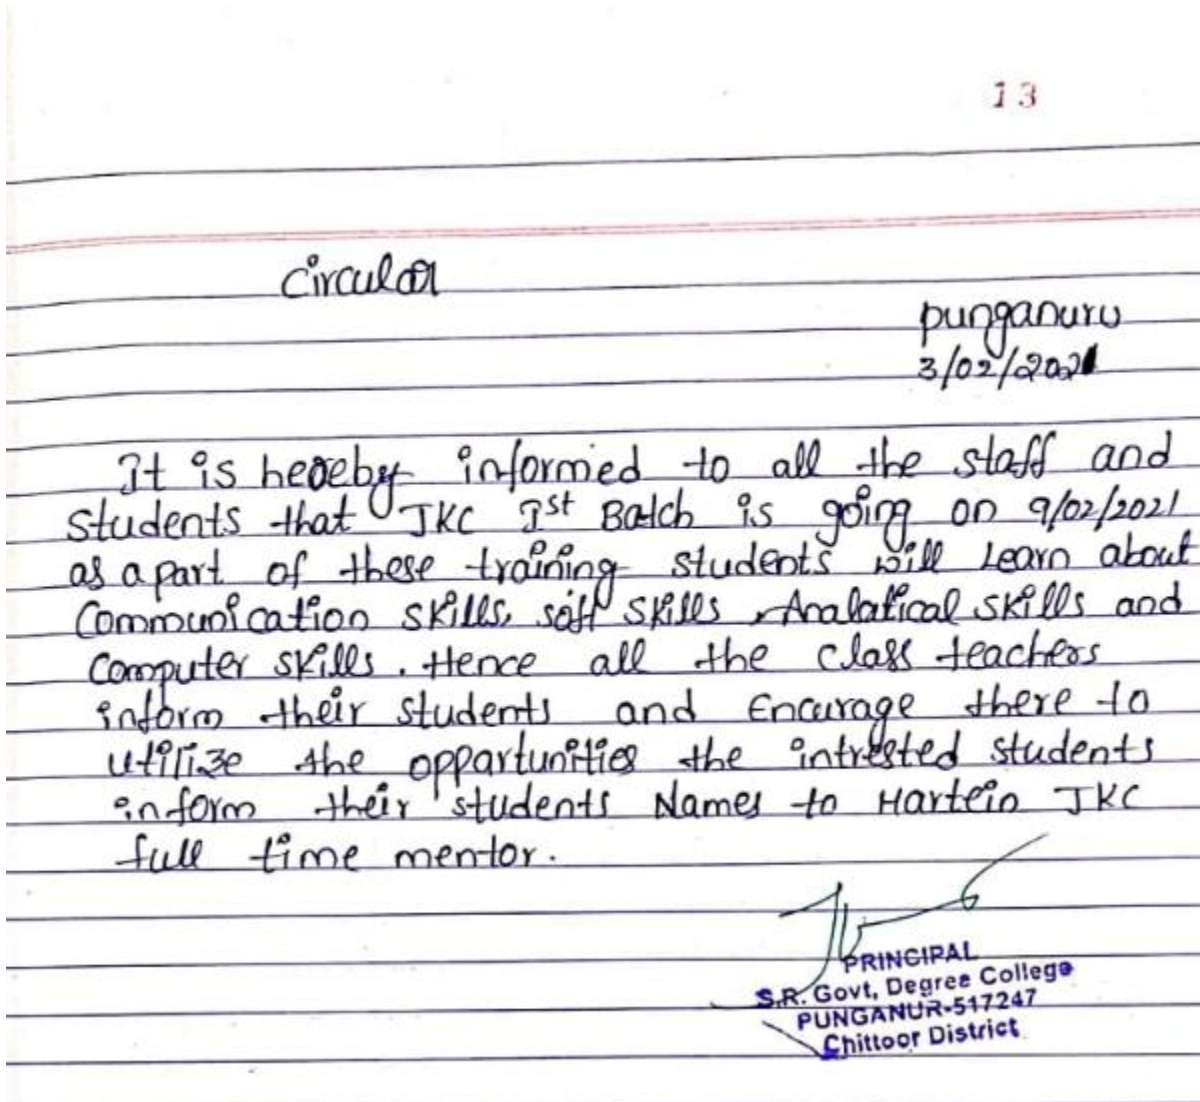 13
Circular
punganuru
3/02/2021
It is hereby informed to all the staff and
students that JKC Ist Batch is going on 9/02/2021
as a part of these training students will Learn about
Communication skills, soft skills, Analatical skills and
Computer skills. Hence all the class teachers
inform their students and Encurage there to
utilize the oppartunities the intrested students
inform their students Names to Hartein JKC
full time mentor.
PRINCIPAL
S.R. Govt, Degree College
PUNGANUR-517247
Chittoor District